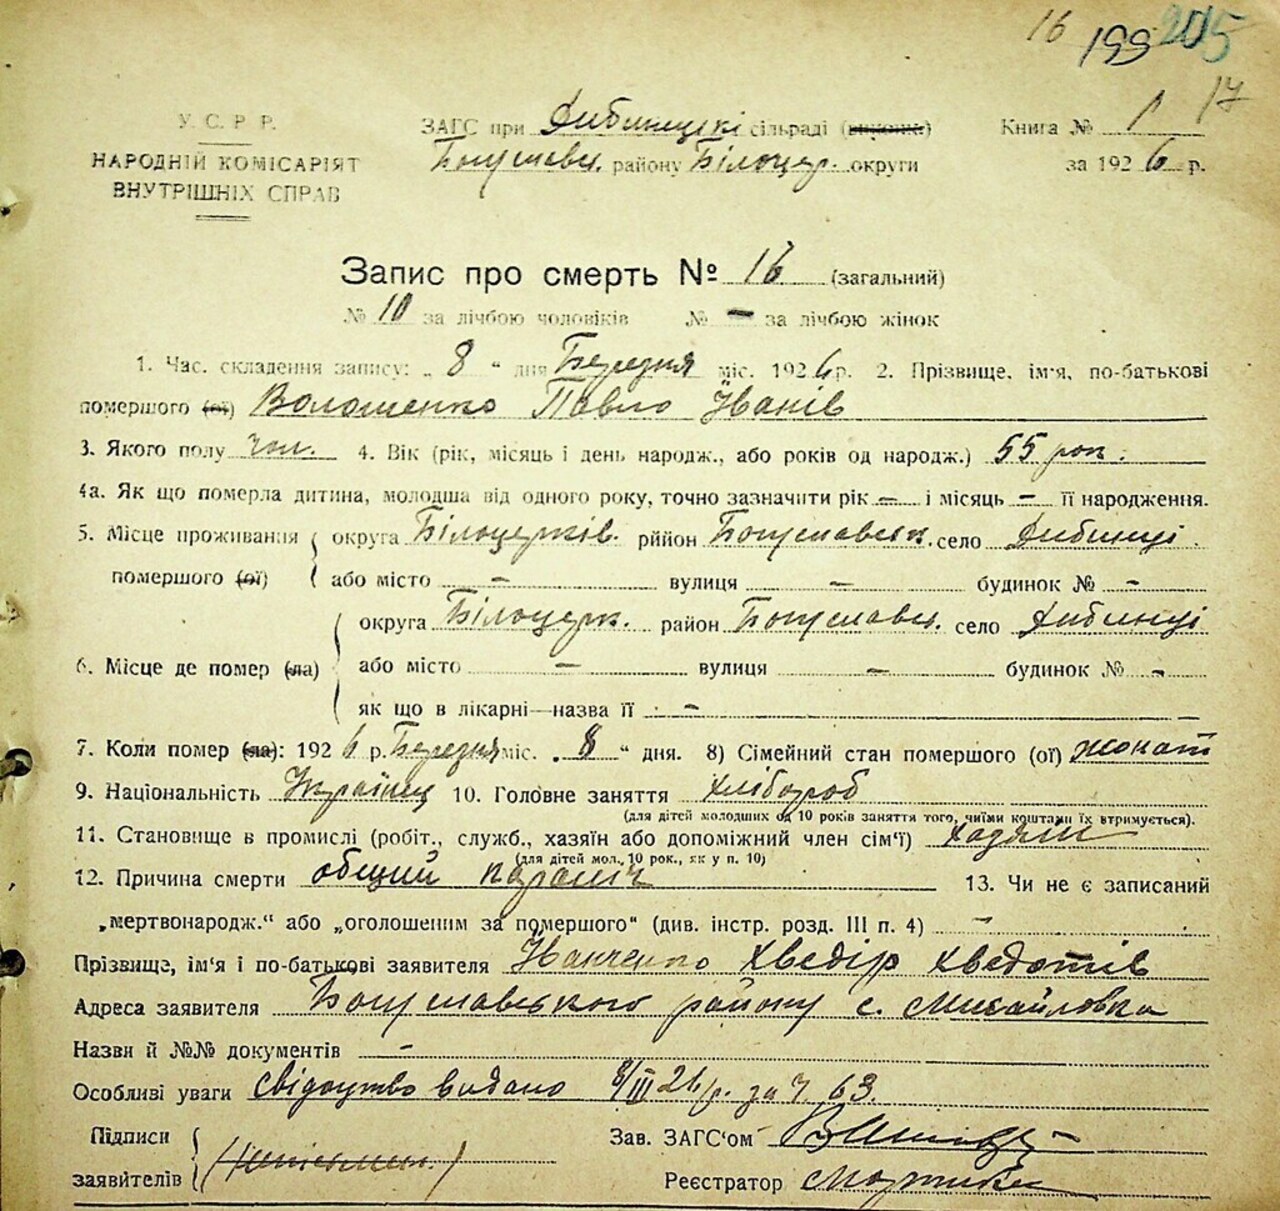 16 199 205
17
У. С. Р. Р.
НАРОДНІЙ КОМІСАРІЯТ
ВНУТРІШНІХ СПРАВ
ЗАГС при Дибинецькі сільраді
Богуславс. району Білоцер. округи
Книга № 1
за 1926 р.
Запис про смерть № 16 (загальний)
№ 10 за лічбою чоловіків № – за лічбою жінок
1. Час. складення запису: „ 8 “ дня Березня міс. 1926 р. 2. Прізвище, ім'я, по-батькові
помершого (ої) Волошенко Павло Іванів
3. Якого полу чол. 4. Вік (рік, місяць і день народж., або років од народж.) 55 рок.
4а. Як що померла дитина, молодша від одного року, точно зазначити рік – і місяць – її народження.
5. Місце проживання округа Білоцерків. рййон Богуславськ. село Дибинці.
помершого (ої) або місто – вулиця – будинок № –
округа Білоцерк. район Богуславс. село Дибинці
6. Місце де помер (ла) або місто – вулиця – будинок № –
як що в лікарні—назва її –
7. Коли помер (ла): 1926 р. Березня міс. „ 8 “ дня. 8) Сімейний стан помершого (ої) жонат
9. Національність Українец 10. Головне заняття хлібороб
(для дітей молодших од 10 років заняття того, чиїми коштами їх втримується).
11. Становище в промислі (робіт., служб., хазяїн або допоміжний член сім'ї) хазяїн
(для дітей мол., 10 рок., як у п. 10)
12. Причина смерти общий параліч 13. Чи не є записаний
„мертвонародж.“ або „оголошеним за помершого“ (див. інстр. розд. III п. 4) –
Прізвище, ім'я і по-батькові заявителя Іванченко Хведір Хведотів
Адреса заявителя Богуславського району с. Михайловка
Назви й №№ документів –
Особливі уваги свідоцтво видано 8/III 26 р. за ч. 63.
Підписи
заявителів
Зав. ЗАГС'ом
Реєстратор